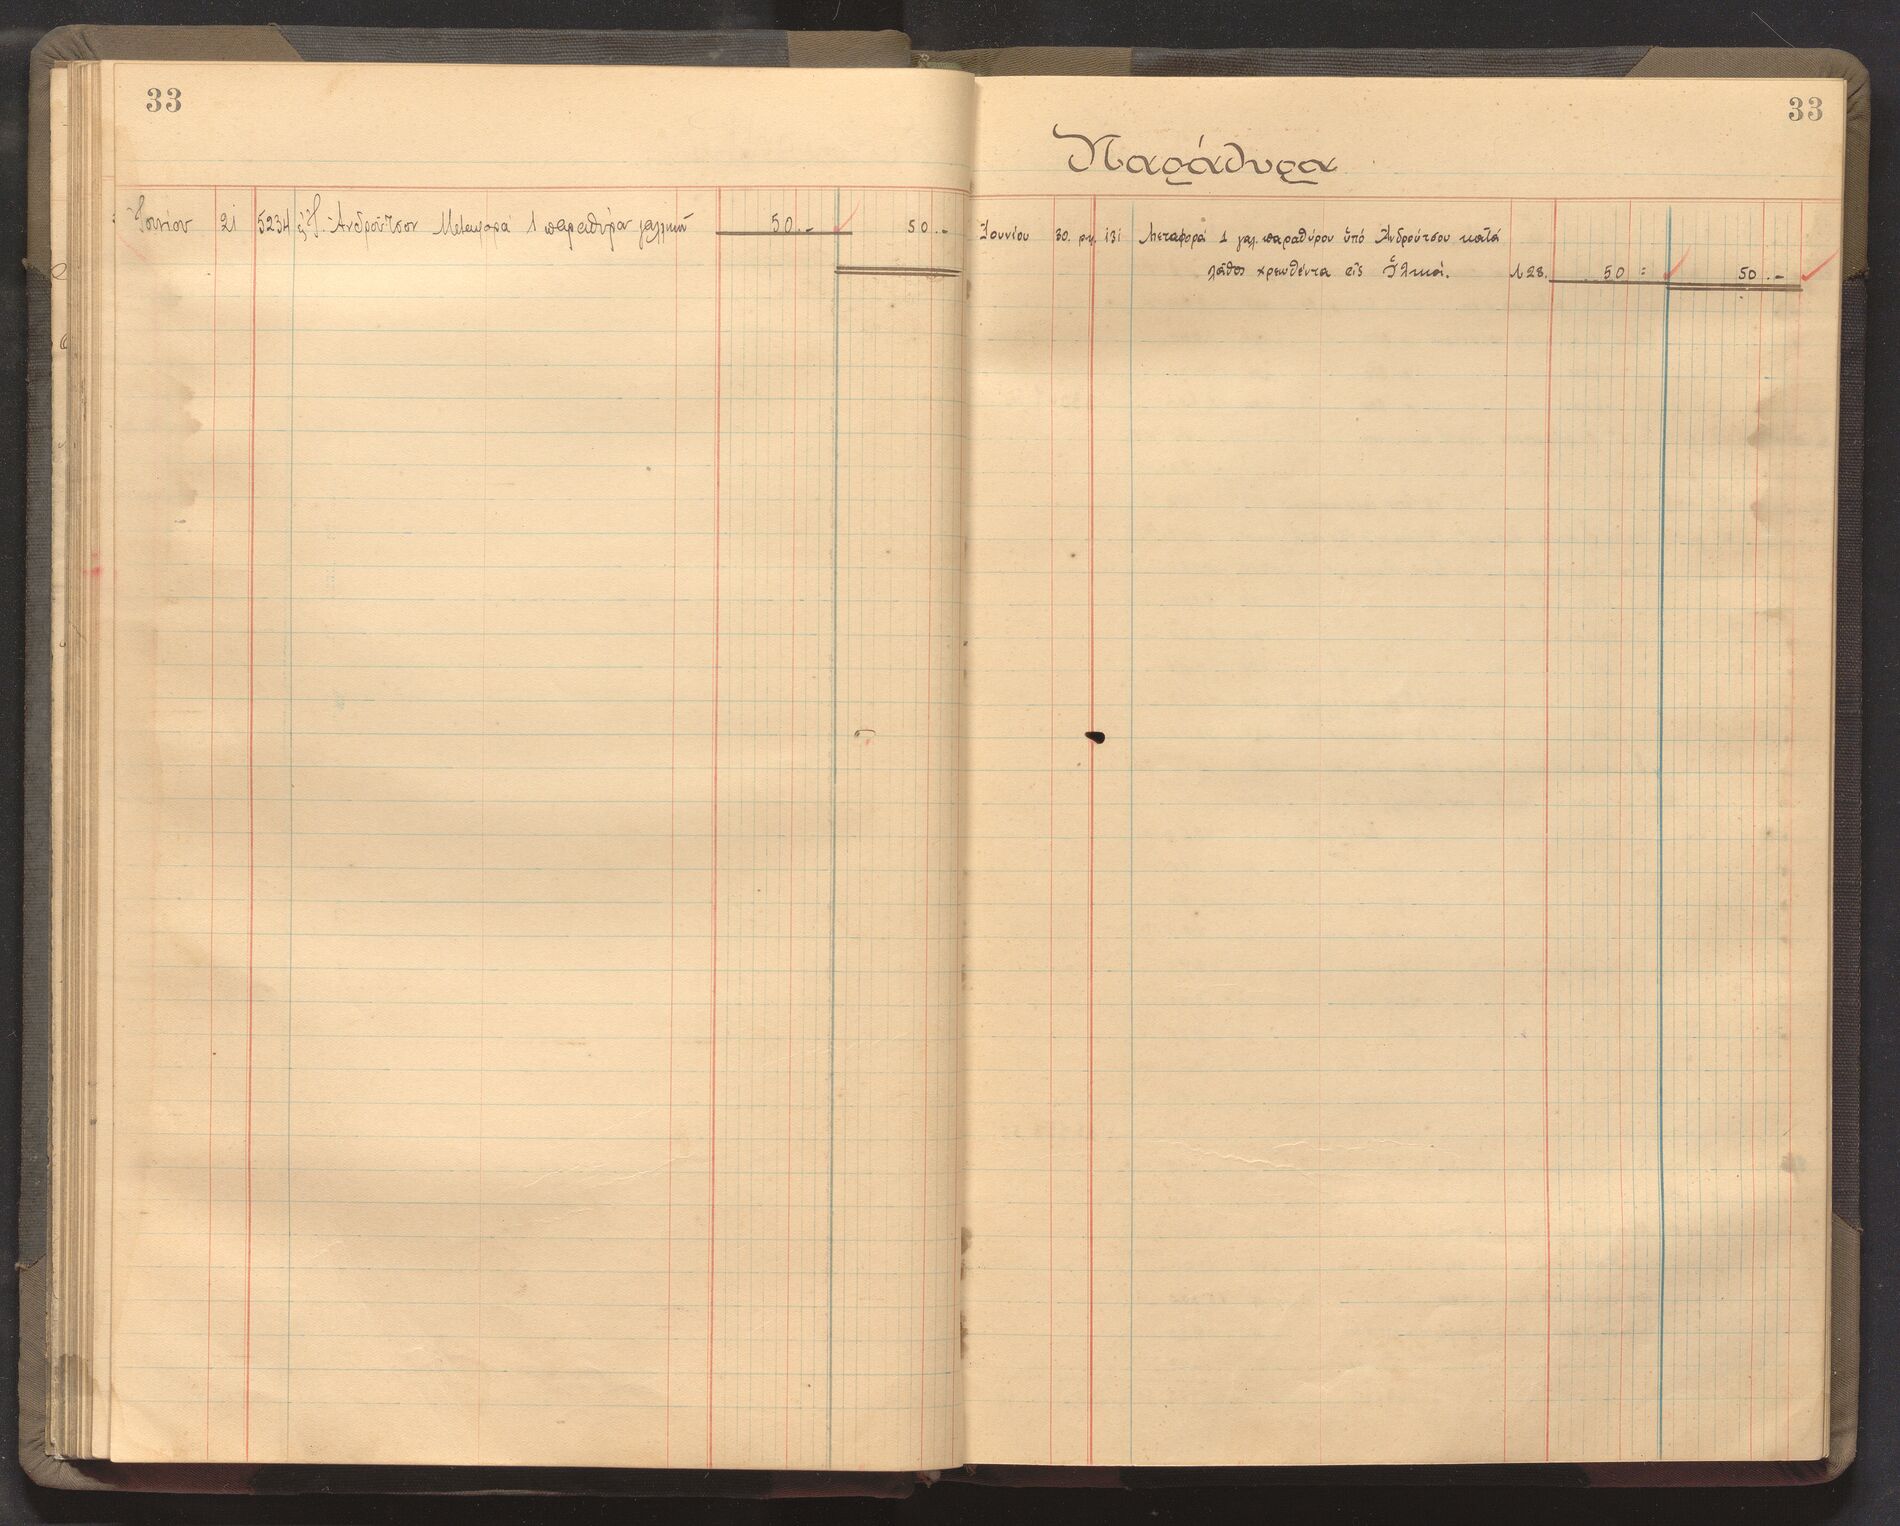 33
Ἰουνίου 21 5234 Ἀνδροῦτσον Μεταφορά 1 παραθύρα 50.- 50.-
33
Παράθυρα
Ἰουνίου 30. 131 Μεταφορά 1 γαλ. παραθύρου ὑπό Ἀνδρούτσου κατά
λάθος χρεωθέντα εἰς Ὑλικά. 128. 50 = 50.-